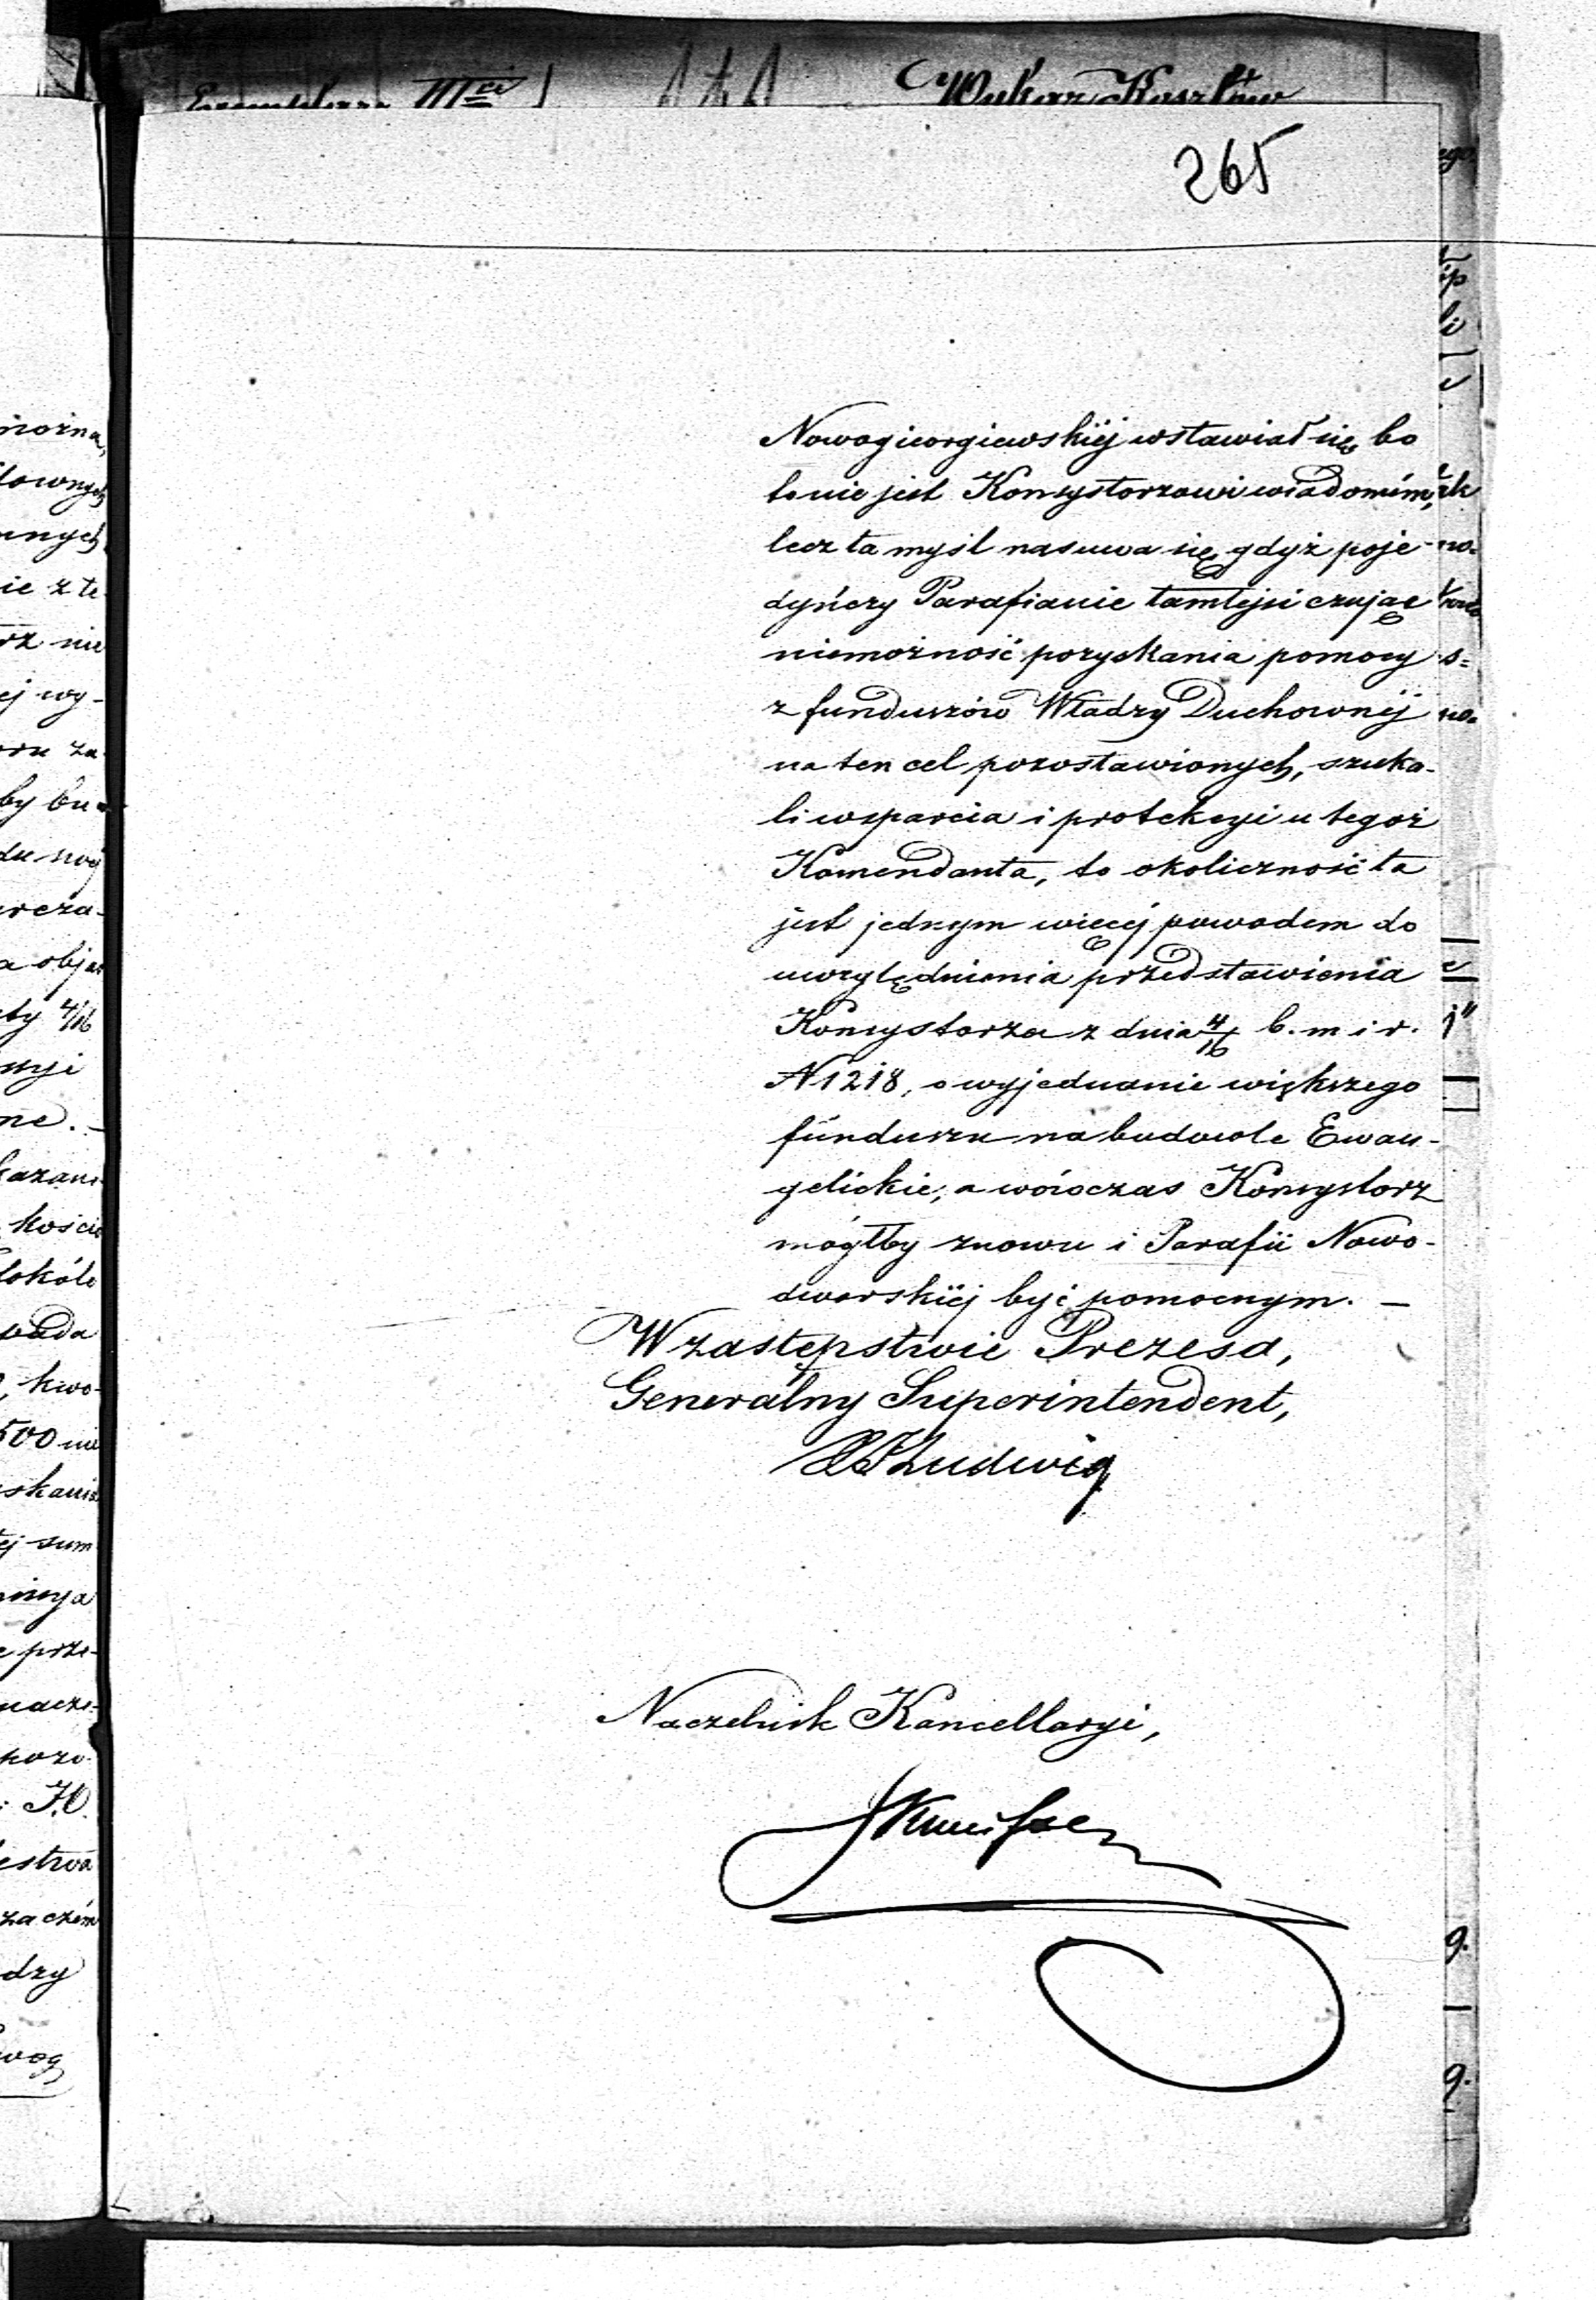 265
Nowogieorgiewskiéj wstawiał się, bo
to nie jest Konsystorzowi wiadomém,
lecz ta myśl nasuwa się, gdyż poje-
dyńczy Parafianie tamtejsi czując
niemożność pozyskania pomocy
z funduszów Władzy Duchownéj
na ten cel pozostawionych, szuka-
li wsparcia i protekcyi u tegoż
Komendanta, to okoliczność ta
jest jednym więcéj powodem do
uwzględnienia przedstawienia
Konsystorza z dnia 4/16 b. m i r.
N 1218, o wyjednanie większego
funduszu na budowle Ewan-
gelickie, a wówczas Konsystorz
mógłby znowu i Parafii Nowo-
dworskiéj być pomocnym. —
W zastępstwie Prezesa,
Generalny Superintendent,
Ludwig
Naczelnik Kancellaryi,